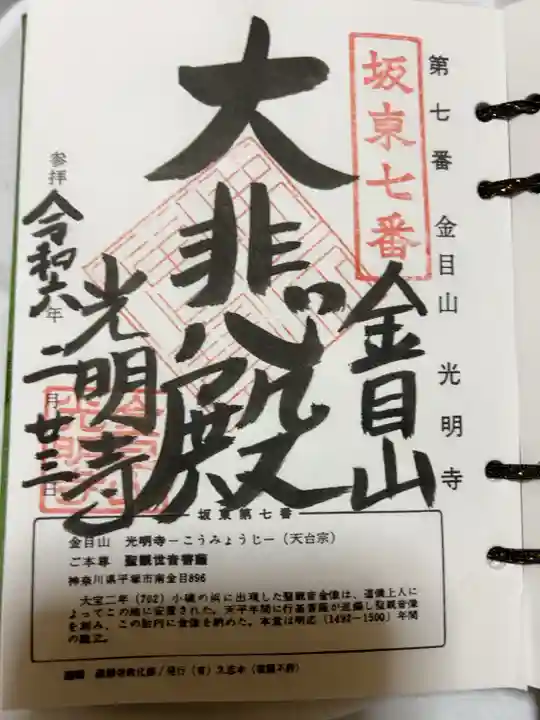 第七番 金目山 光明寺
坂東七番
金目山
大悲殿
光明寺
参拝 令和六年 二月廿三日
坂東第七番
金目山 光明寺−こうみょうじ−(天台宗)
ご本尊 聖観世音菩薩
神奈川県平塚市南金目896
大宝二年(702)小磯の浜に出現した聖観音金像は、道儀上人に
よってこの地に安置された。天平年間に行基菩薩が巡錫し聖観音像
を刻み、この胎内に金像を納めた。本堂は明応(1492−1500)年間
の建立。